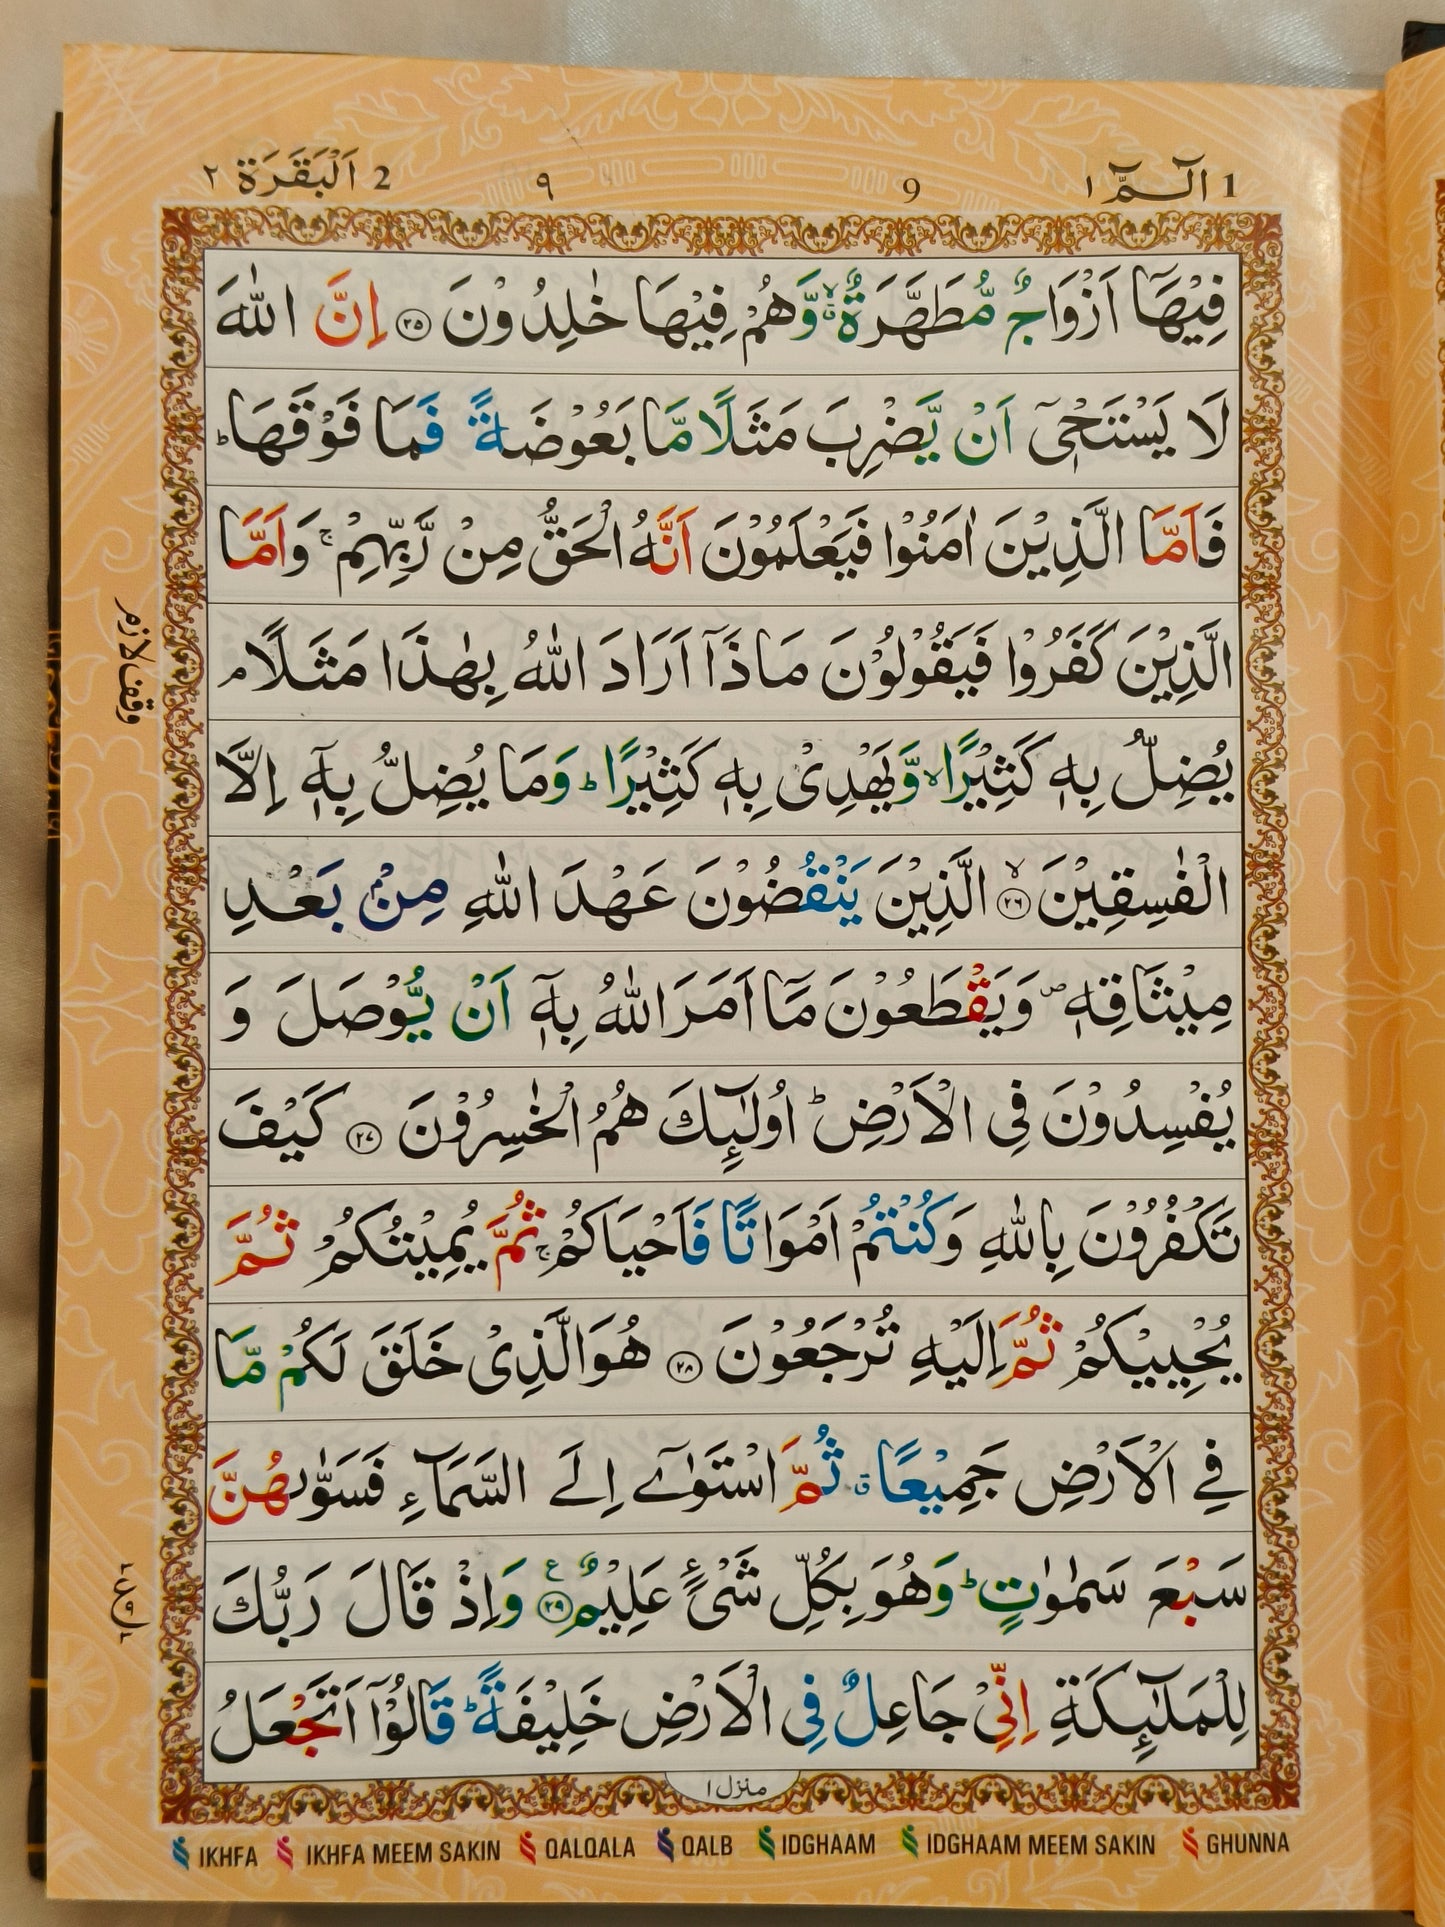 1 الٓـمّٓ ١
9
٩
2 اَلْبَقَرَة ٢
فِيْهَاۤ اَزْوَاجٌ مُّطَهَّرَةٌ ۙۗ وَّهُمْ فِيْهَا خٰلِدُوْنَ ﴿۲۵﴾ اِنَّ اللّٰهَ
لَا يَسْتَحْيٖۤ اَنْ يَّضْرِبَ مَثَلًا مَّا بَعُوْضَةً فَمَا فَوْقَهَا ؕ
فَاَمَّا الَّذِيْنَ اٰمَنُوْا فَيَعْلَمُوْنَ اَنَّهُ الْحَقُّ مِنْ رَّبِّهِمْ ۚ وَاَمَّا
الَّذِيْنَ كَفَرُوْا فَيَقُوْلُوْنَ مَاذَاۤ اَرَادَ اللّٰهُ بِهٰذَا مَثَلًا ۘ
يُضِلُّ بِهٖ كَثِيْرًا ۙ وَّيَهْدِىْ بِهٖ كَثِيْرًا ؕ وَمَا يُضِلُّ بِهٖۤ اِلَّا
الْفٰسِقِيْنَ ﴿۲۶﴾ ۙ الَّذِيْنَ يَنْقُضُوْنَ عَهْدَ اللّٰهِ مِنْۢ بَعْدِ
مِيْثَاقِهٖ ۪ وَيَقْطَعُوْنَ مَاۤ اَمَرَ اللّٰهُ بِهٖۤ اَنْ يُّوْصَلَ وَ
يُفْسِدُوْنَ فِى الْاَرْضِ ؕ اُولٰٓٮِٕكَ هُمُ الْخٰسِرُوْنَ ﴿۲۷﴾ كَيْفَ
تَكْفُرُوْنَ بِاللّٰهِ وَكُنْتُمْ اَمْوَاتًا فَاَحْيَاكُمْ ۚ ثُمَّ يُمِيْتُكُمْ ثُمَّ
يُحْيِيْكُمْ ثُمَّ اِلَيْهِ تُرْجَعُوْنَ ﴿۲۸﴾ هُوَ الَّذِىْ خَلَقَ لَكُمْ مَّا
فِى الْاَرْضِ جَمِيْعًا ۗ ثُمَّ اسْتَوٰٓى اِلَى السَّمَآءِ فَسَوّٰٮهُنَّ
سَبْعَ سَمٰوٰتٍ ؕ وَهُوَ بِكُلِّ شَىْءٍ عَلِيْمٌ ﴿۲۹﴾ ع وَاِذْ قَالَ رَبُّكَ
لِلْمَلٰٓٮِٕكَةِ اِنِّىْ جَاعِلٌ فِى الْاَرْضِ خَلِيْفَةً ؕ قَالُوْۤا اَتَجْعَلُ
منزل ١
وقف لازم
IKHFA IKHFA MEEM SAKIN QALQALA QALB IDGHAAM IDGHAAM MEEM SAKIN GHUNNA